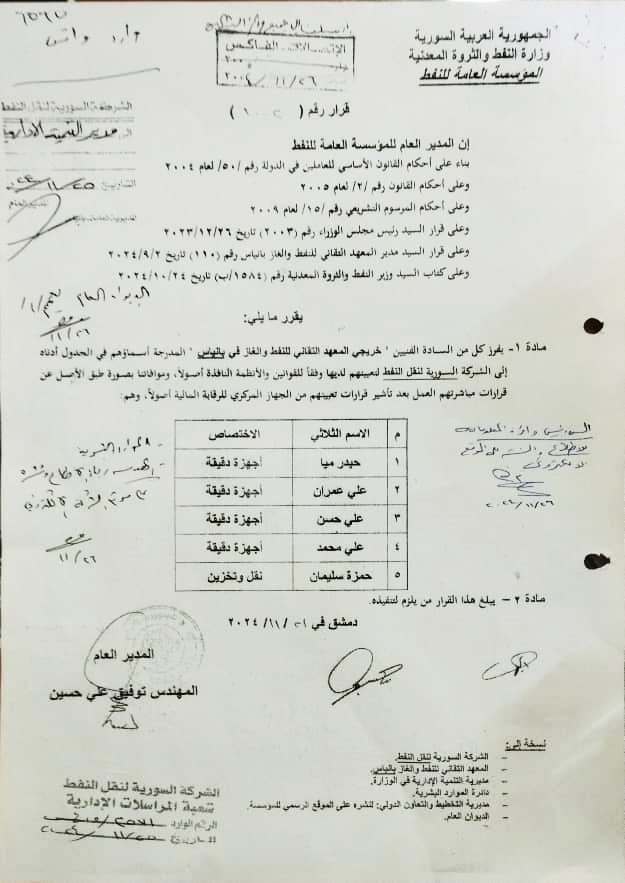 الجمهورية العربية السورية
وزارة النفط والثروة المعدنية
المؤسسة العامة للنفط
وارد
الشركة السورية لنقل النفط
مدير التنمية الإدارية
قرار رقم ( )
إن المدير العام للمؤسسة العامة للنفط
بناء على أحكام القانون الأساسي للعاملين في الدولة رقم /٥٠/ لعام ٢٠٠٤
وعلى أحكام القانون رقم /٢/ لعام ٢٠٠٥
وعلى أحكام المرسوم التشريعي رقم /١٥/ لعام ٢٠٠٩
وعلى قرار السيد رئيس مجلس الوزراء رقم (٢٠٠٣) تاريخ ٢٠٢٣/١٢/٢٦
وعلى قرار السيد مدير المعهد التقاني للنفط والغاز بانياس رقم (١١٠) تاريخ ٢٠٢٤/٩/٢
وعلى كتاب السيد وزير النفط والثروة المعدنية رقم (١٥٨٤/ب) تاريخ ٢٠٢٤/١٠/٢٤
الديوان العام
١١/٢٦
يقرر ما يلي:
مادة ١- يفرز كل من السادة الفنيين " خريجي المعهد التقاني للنفط والغاز في بانياس " المدرجة أسماؤهم في الجدول أدناه
إلى الشركة السورية لنقل النفط لتعيينهم لديها وفقاً للقوانين والأنظمة النافذة أصولاً، وموافاتنا بصورة طبق الأصل عن
قرارات مباشرتهم العمل بعد تأشير قرارات تعيينهم من الجهاز المركزي للرقابة المالية أصولاً، وهم:
م الاسم الثلاثي الاختصاص
١ حيدر ميا أجهزة دقيقة
٢ علي عمران أجهزة دقيقة
٣ علي حسن أجهزة دقيقة
٤ علي محمد أجهزة دقيقة
٥ حمزة سليمان نقل وتخزين
الموارد البشرية
١١/٢٦
٢٠٢٤/١١/٢٦
مادة ٢- يبلغ هذا القرار من يلزم لتنفيذه.
دمشق في / ١١ / ٢٠٢٤
المدير العام
المهندس توفيق علي حسين
نسخة إلى:
– الشركة السورية لنقل النفط.
– المعهد التقاني للنفط والغاز بانياس.
– مديرية التنمية الإدارية في الوزارة.
– دائرة الموارد البشرية.
– مديرية التخطيط والتعاون الدولي: لنشره على الموقع الرسمي للمؤسسة.
– الديوان العام.
الشركة السورية لنقل النفط
شعبة المراسلات الإدارية
الرقم الوارد
التاريخ